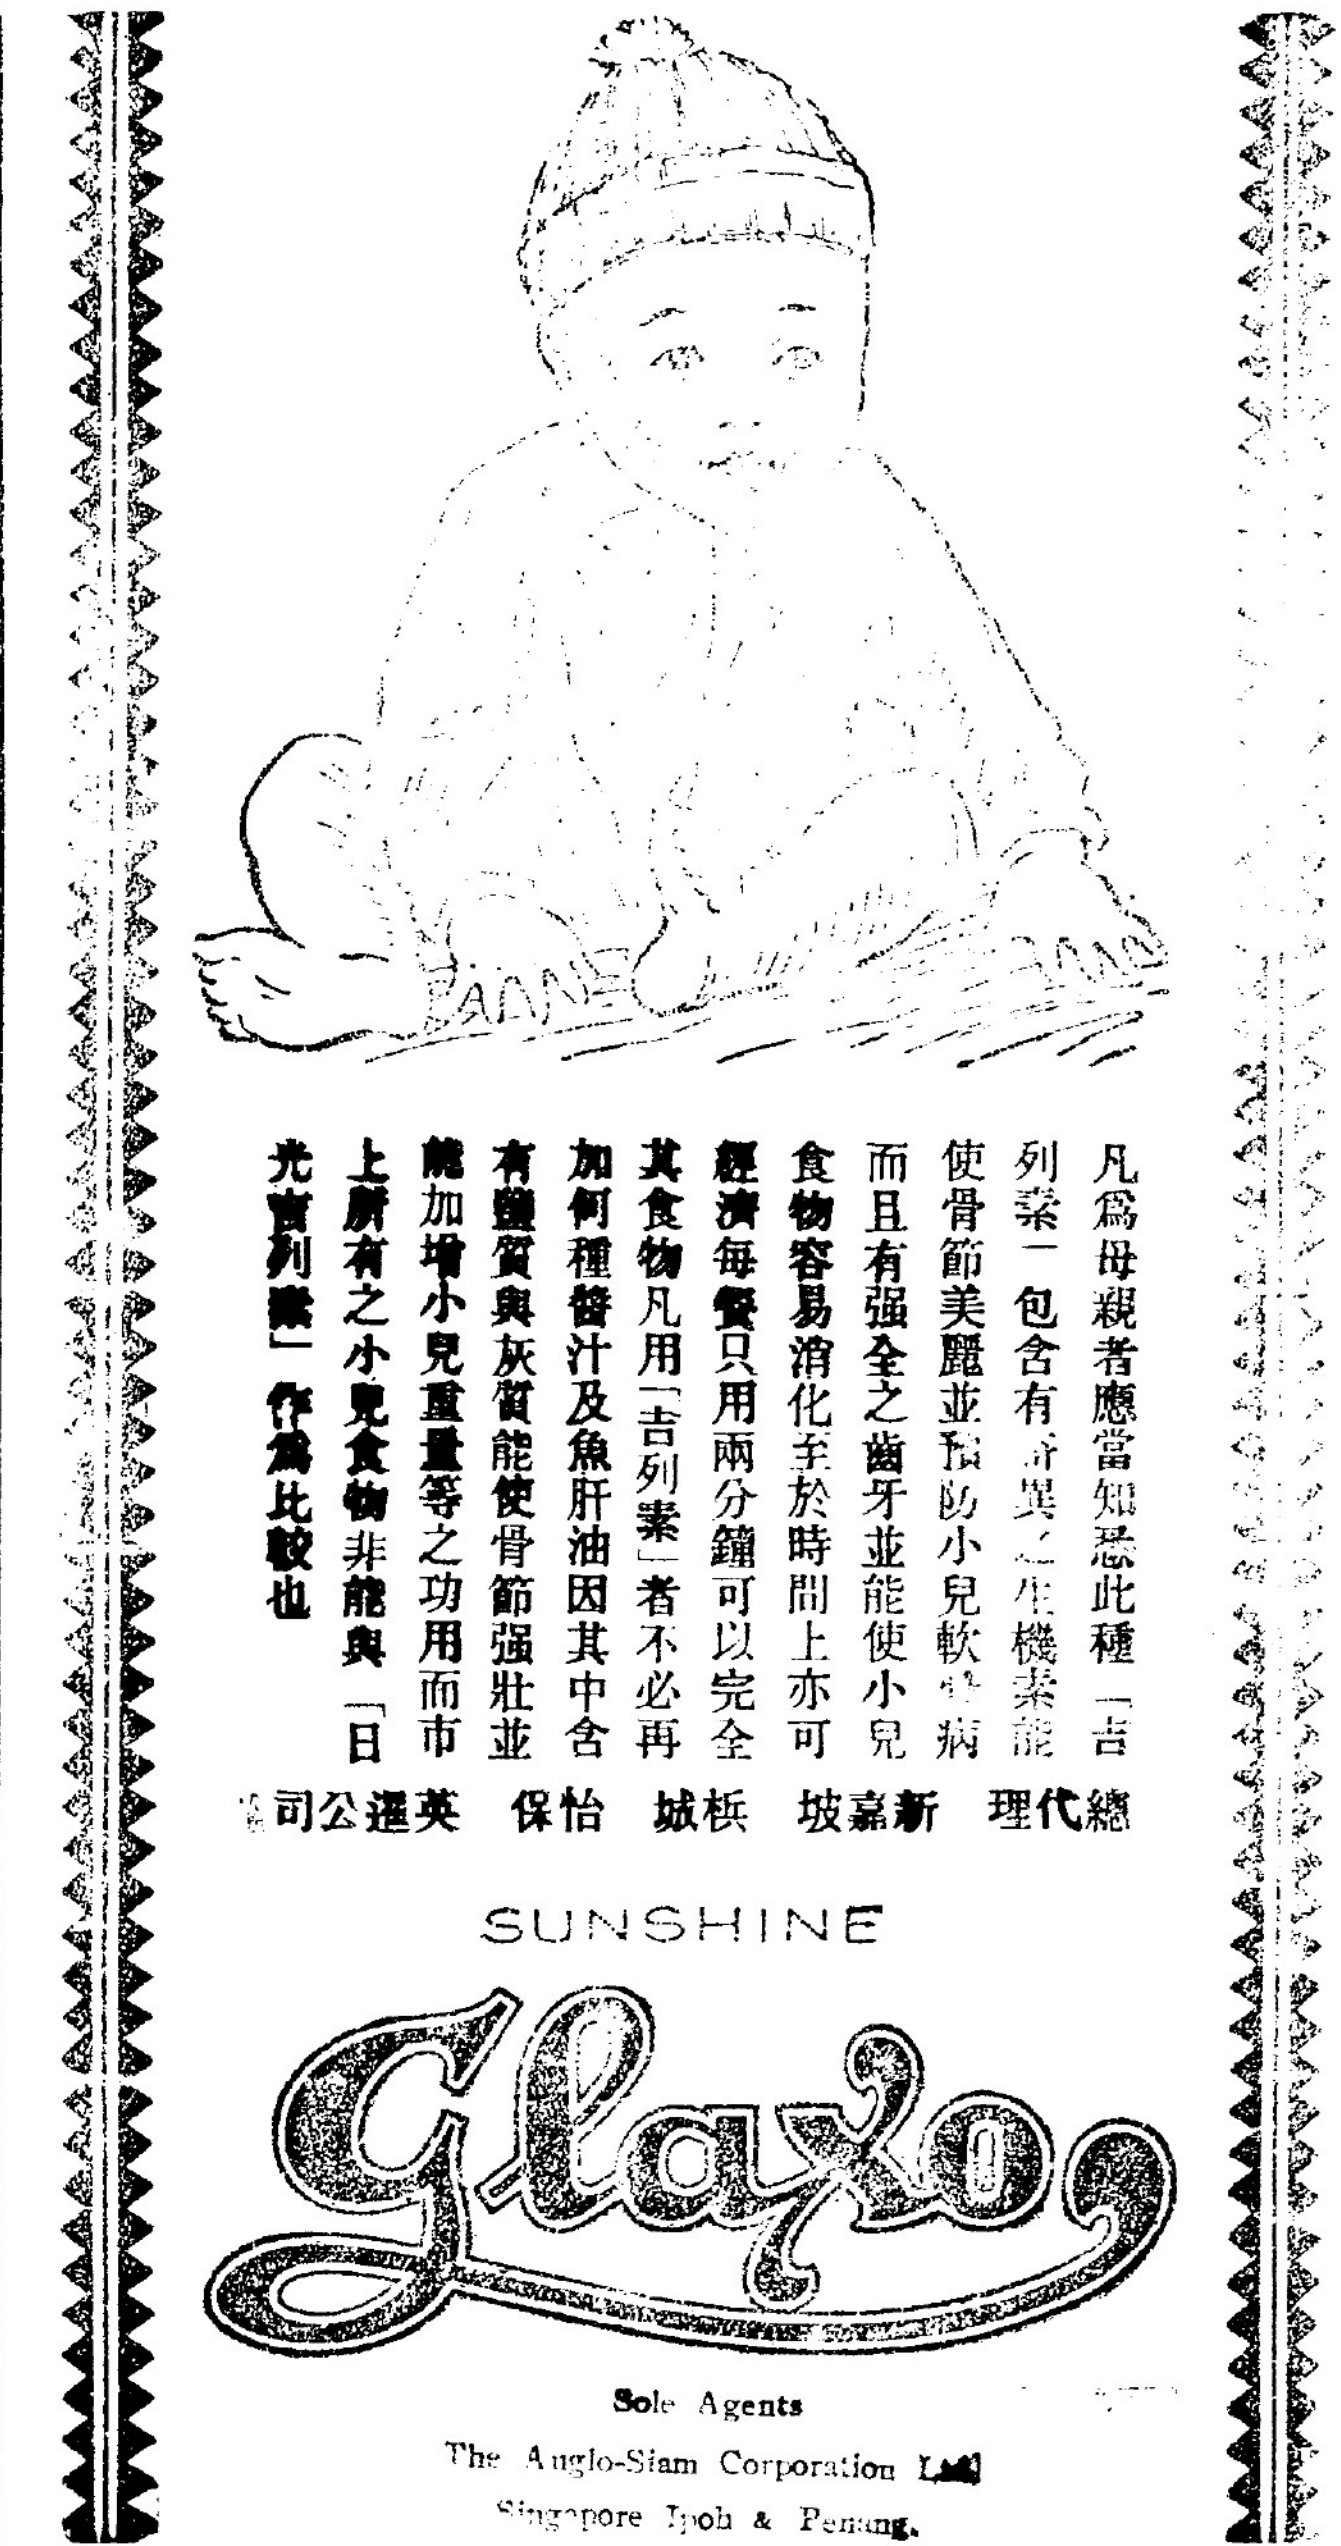 凡爲母親者應當知悉此種「吉
列素」包含有奇異之生機素能
使骨節美麗並預防小兒軟骨病
而且有强全之齒牙並能使小兒
食物容易消化至於時間上亦可
經濟每餐只用兩分鐘可以完全
其食物凡用「吉列素」者不必再
加何種醬汁及魚肝油因其中含
有鹽質與灰質能使骨節强壯並
能加增小兒重量等之功用而市
上所有之小兒食物非能與「日
光吉列素」作爲比較也
總代理 新嘉坡 梹城 怡保 英暹公司
SUNSHINE
Glaxo
Sole Agents
The Anglo-Siam Corporation Ltd
Singapore Ipoh & Penang.